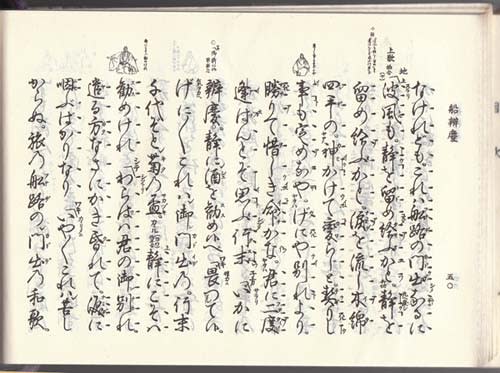 船辨慶
五〇
地
上歌
なけれどもこれハ船路の門出なるに
波風も。静を留め給ふかと。静を
留め給ふかと。涙を流し木綿
四手の。神かけて変らじと契りし
事も定めなや。げにや別れより
勝りて惜しき命かな。君に二度
逢はんとぞ思ふ行末 いかに
辨慶。静に酒を勧め候へ 畏つて候
げに〱これハ御門出の行末
千代ぞと菊の盃。静にこそハ
勧めけれ わらはハ君の御別れ
遣る方なさにかき昏れて。涙に
咽ぶばかりなり いや〱これハ苦し
からぬ。旅の船路の門出の和歌。